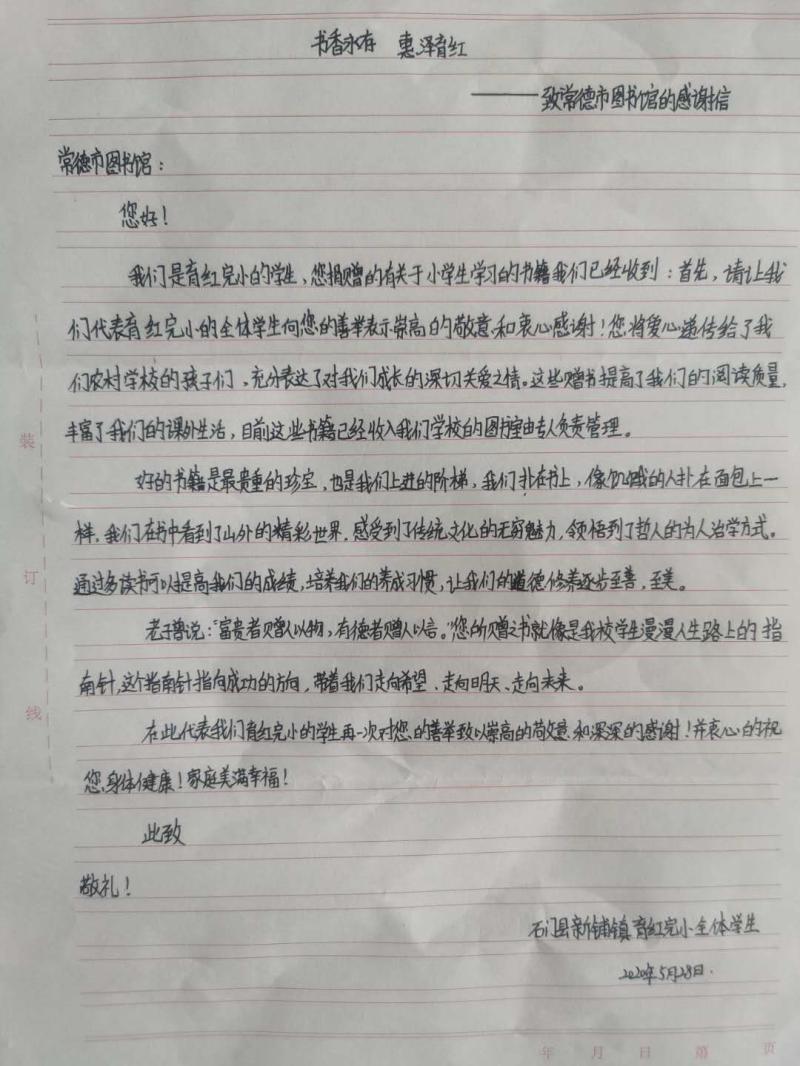 书香永存 惠泽育红
——致常德市图书馆的感谢信
常德市图书馆：
您好！
我们是育红完小的学生、您捐赠的有关于小学生学习的书籍我们已经收到：首先，请让我
们代表育红完小的全体学生向您的善举表示崇高的敬意和衷心感谢！您将爱心递传给了我
们农村学校的孩子们、充分表达了对我们成长的深切关爱之情。这些赠书提高了我们的阅读质量，
丰富了我们的课外生活，目前这些书籍已经收入我们学校的图书室由专人负责管理。
好的书籍是最贵重的珍宝，也是我们上进的阶梯，我们扑在书上，像饥饿的人扑在面包上一
样，我们在书中看到了山外的精彩世界，感受到了传统文化的无穷魅力，领悟到了哲人的为人治学方式。
通过多读书可以提高我们的成绩，培养我们的养成习惯，让我们的道德修养逐步至善，至美。
老子曾说：“富贵者赠人以物，有德者赠人以言。”您所赠之书就像是我校学生漫漫人生路上的指
南针，这个指南针指向成功的方向，带着我们走向希望、走向明天、走向未来。
在此代表我们育红完小的学生再一次对您的善举致以崇高的敬意和深深的感谢！并衷心的祝
您身体健康！家庭美满幸福！
此致
敬礼！
石门县新铺镇育红完小全体学生
2020年5月28日.
装
订
线
年 月 日 第 页